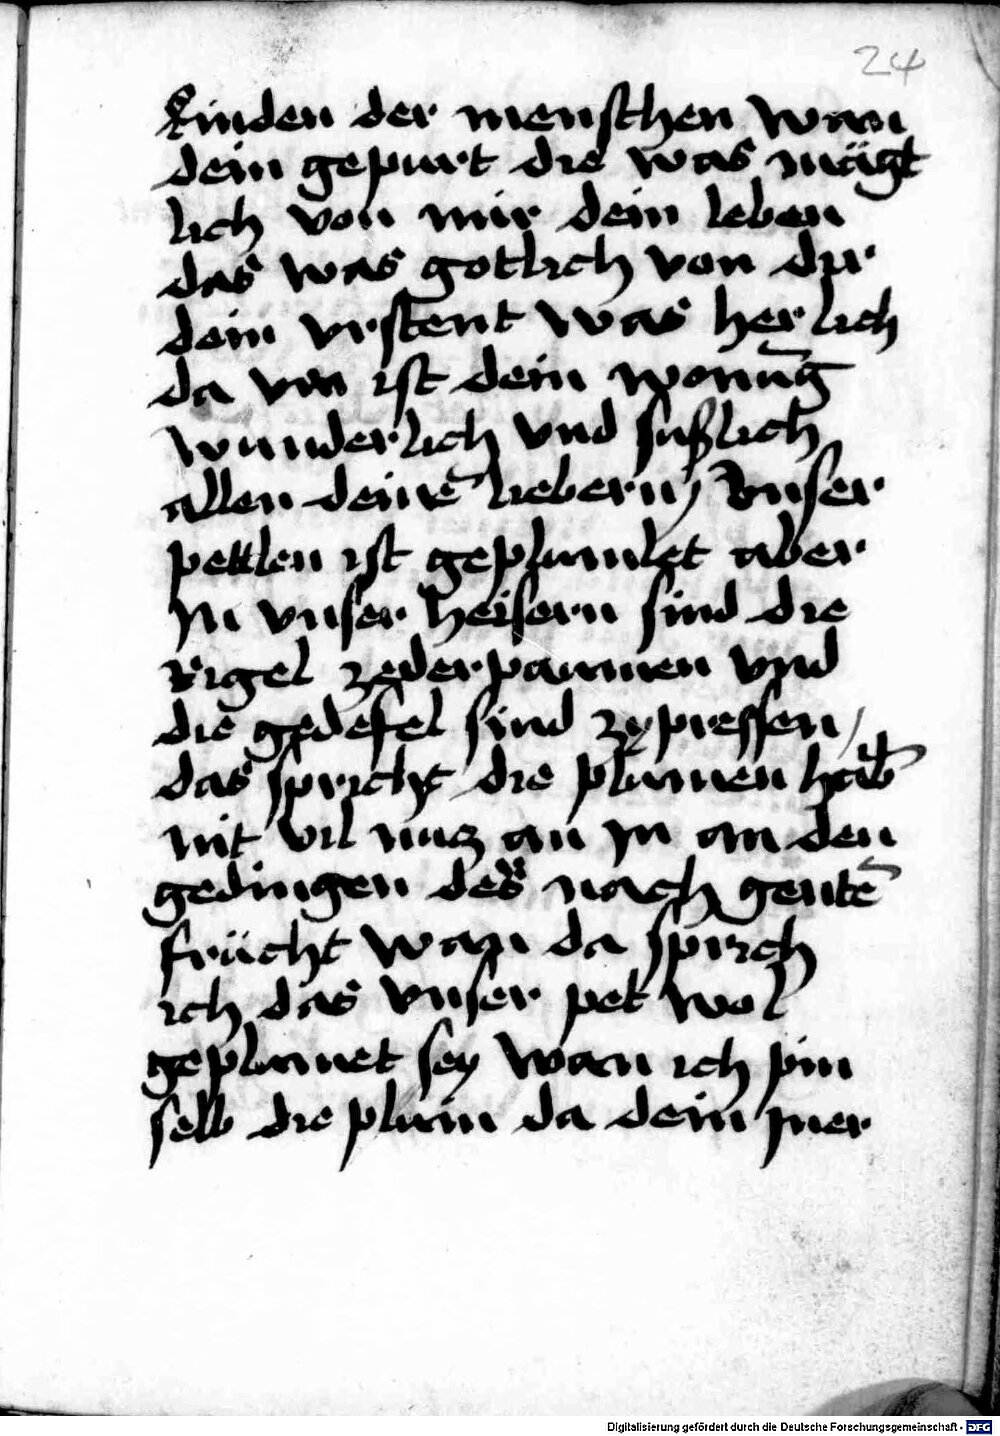 24
kinden der menschen wan
dein gepurt die was mägt
lich von mir dein leben
das was gotlich von dir
dein vrstent was herlich
da von ist dein wonūg
wunderlich vnd sußlich
allen deinē liebern / Vnser
pettlen ist geplumlet aber
In vnser heisern sind die
Rigel zederpaumen vnd
die gedefel sind zypressen /
das spricht die plumen hab̄
nit vil nucz an In an den
gedingen der nach gentē
frücht wan da sprich
ich das vnser pet wol
geplumet sey wan ich pin
selb die plum da dein Iner
Digitalisierung gefördert durch die Deutsche Forschungsgemeinschaft - DFG